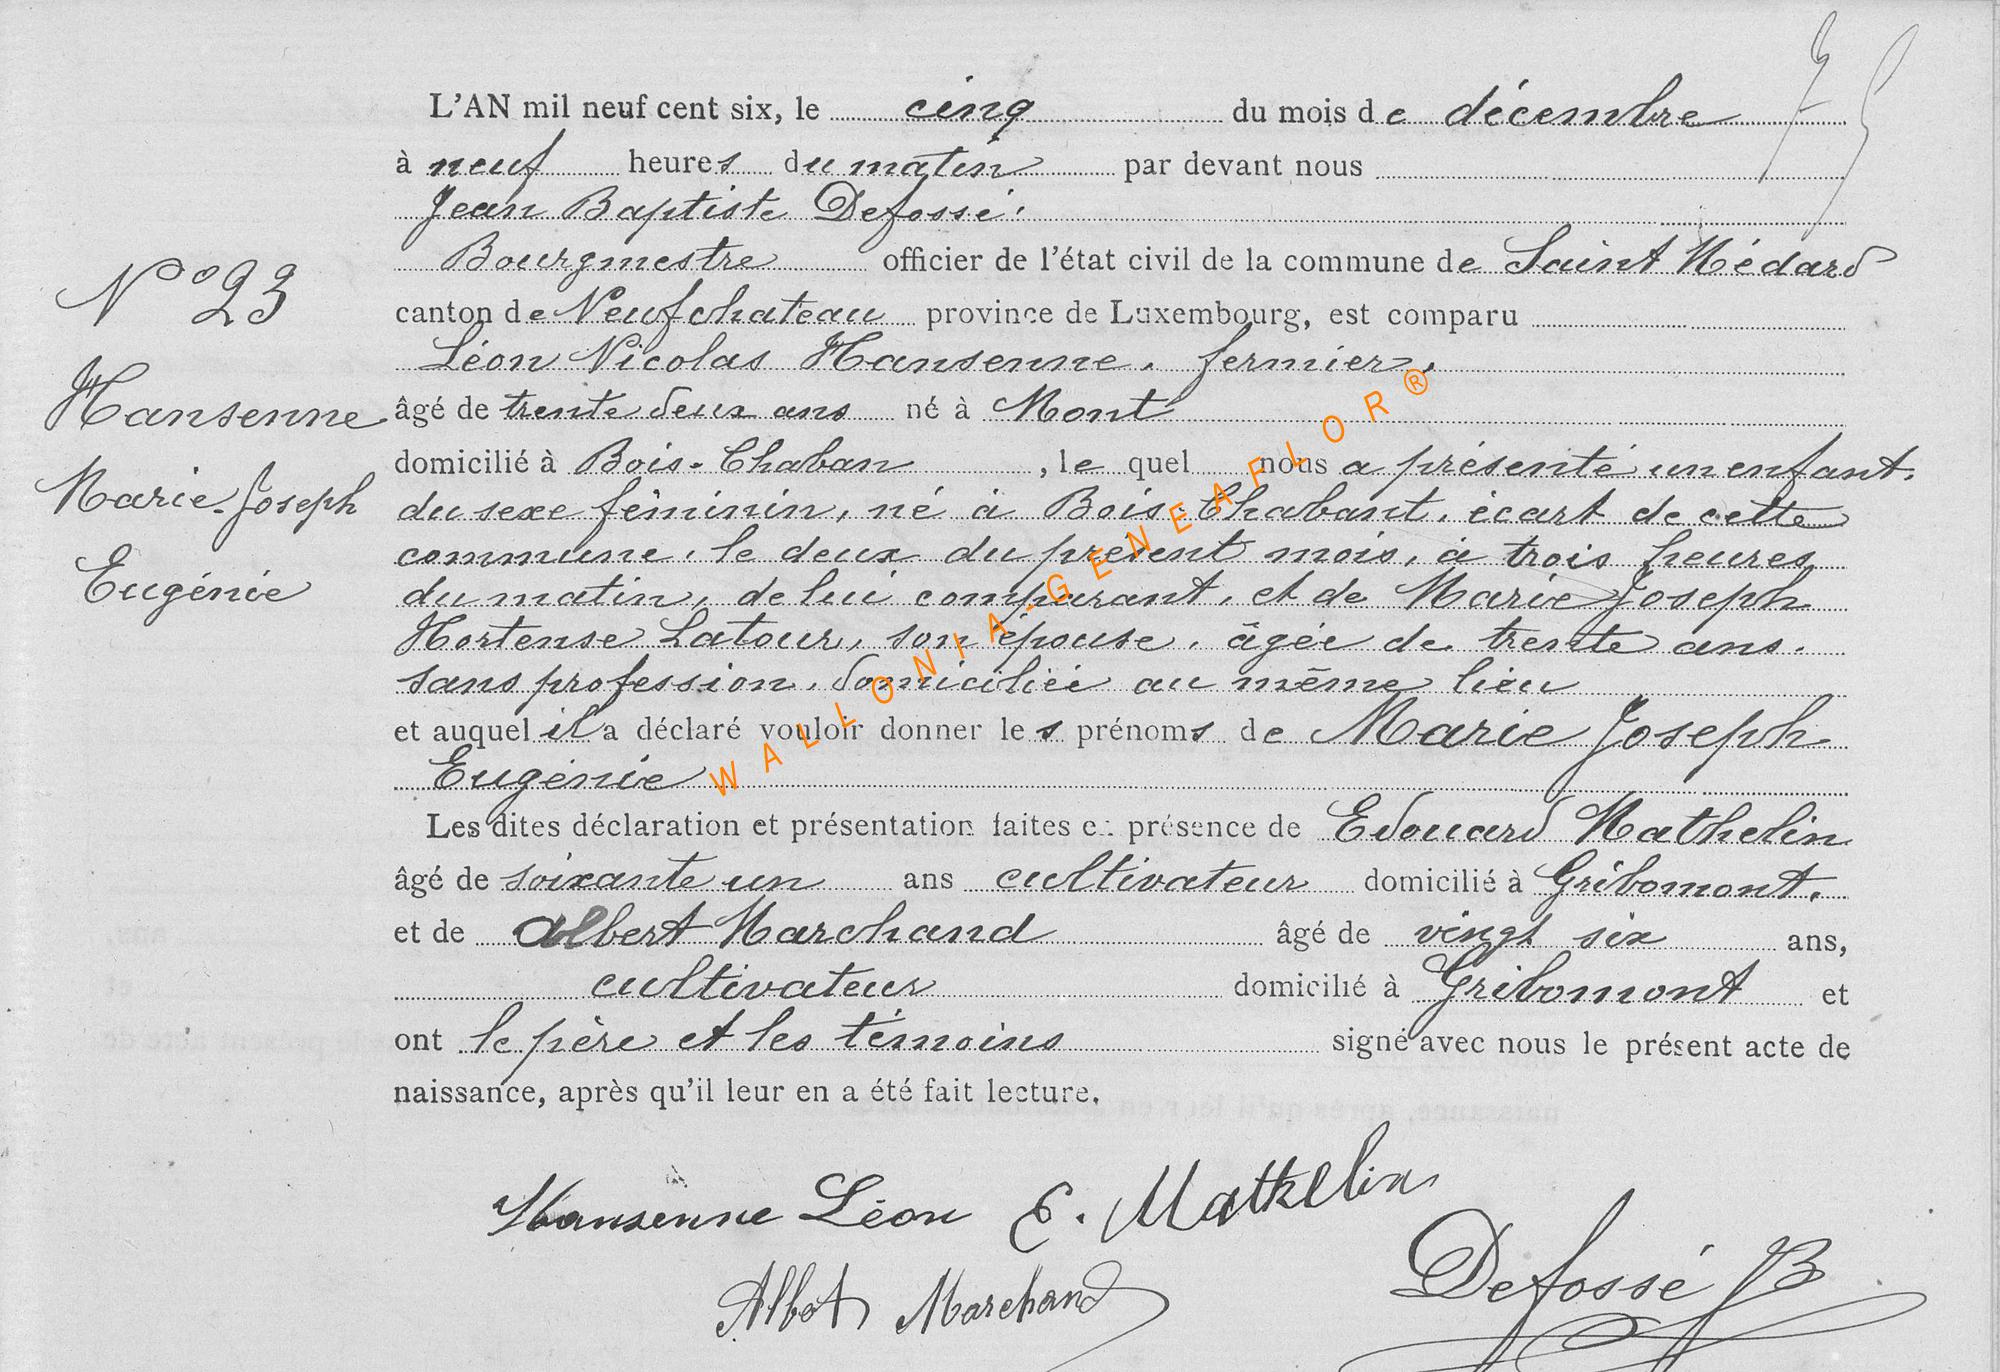 L'AN mil neuf cent six, le cinq du mois de décembre
à neuf heures du matin par devant nous
Jean Baptiste Defossé.
Bourgmestre officier de l'état civil de la commune de Saint Médard
canton de Neufchateau province de Luxembourg, est comparu
Léon Nicolas Hansenne, fermier,
âgé de trente deux ans né à Mont
domicilié à Bois-Chaban, le quel nous a présenté un enfant
du sexe féminin, né à Bois-Chabant, écart de cette
commune, le deux du présent mois, à trois heures
du matin, de lui comparant, et de Marie Joseph
Hortense Latour, son épouse, âgée de trente ans,
sans profession, domiciliée au même lieu
et auquel il a déclaré vouloir donner les prénoms de Marie Joseph
Eugénie
Les dites déclaration et présentation faites en présence de Edouard Mathelin
âgé de soixante un ans cultivateur domicilié à Gribomont,
et de Albert Marchand âgé de vingt six ans,
cultivateur domicilié à Gribomont et
ont le père et les témoins signé avec nous le présent acte de
naissance, après qu'il leur en a été fait lecture.
N° 23
Hansenne
Marie-Joseph
Eugénie
Hansenne Léon E. Mathelin
Albert Marchand
Defossé JB
WALLONIA-GENEAFLOR®